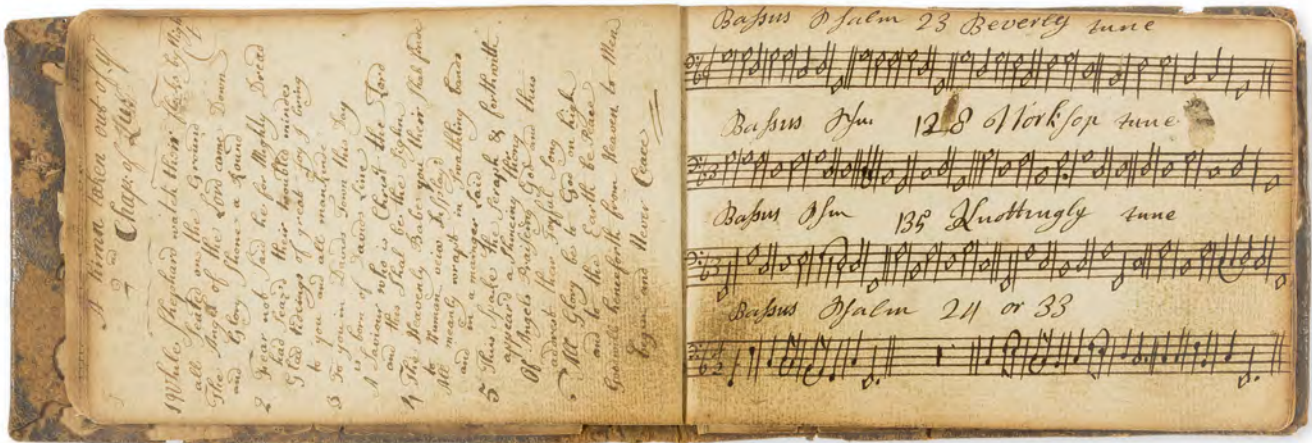 A himn taken out of ye
2nd Chap: of Luke
1 While Shephard watch their flocks by Nigh
all Seated one the Ground
The Angll of the Lord came Down
and Glory Shone a Round
2 Fear not Said he for Mighty Dread
had Seard their troubled mindes
Glad tideings of great Joy I bring
to you and all mankinde
3 To you in Davids Town this Day
is born of Davids Line
A Saviour who is Christ the Lord
and this Shal be the Sighn
4 This Heavenly Babe you their shal finde
to Human view Displayd
All meanly wrapt in swathling bands
and in a manger Laid
5 Thus Spake the Seraph & forthwith
appeard a Shineing thong
Of Angels Praiseing God and thus
adrest thear Joyful Song
All Glory be to God on high
and to the Earth be Peace
Goodwill henceforth from Heaven to Men
begin and Never Ceace
Bassus Psalm 23 Beverly tune
Bassus Psm 128 Worksop tune
Bassus Psm 135 Knottingly tune
Bassus Psalm 24 or 33